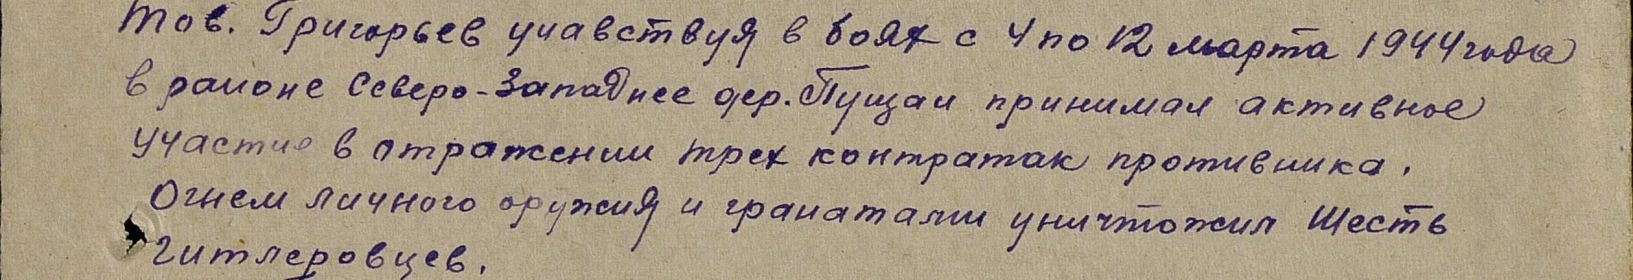 Тов. Григорьев учавствуя в боях с 4 по 12 марта 1944 года
в районе Северо-Западнее дер. Пущаи принимал активное
участие в отражении трех контратак противника.
Огнем личного оружия и гранатами уничтожил шесть
гитлеровцев.